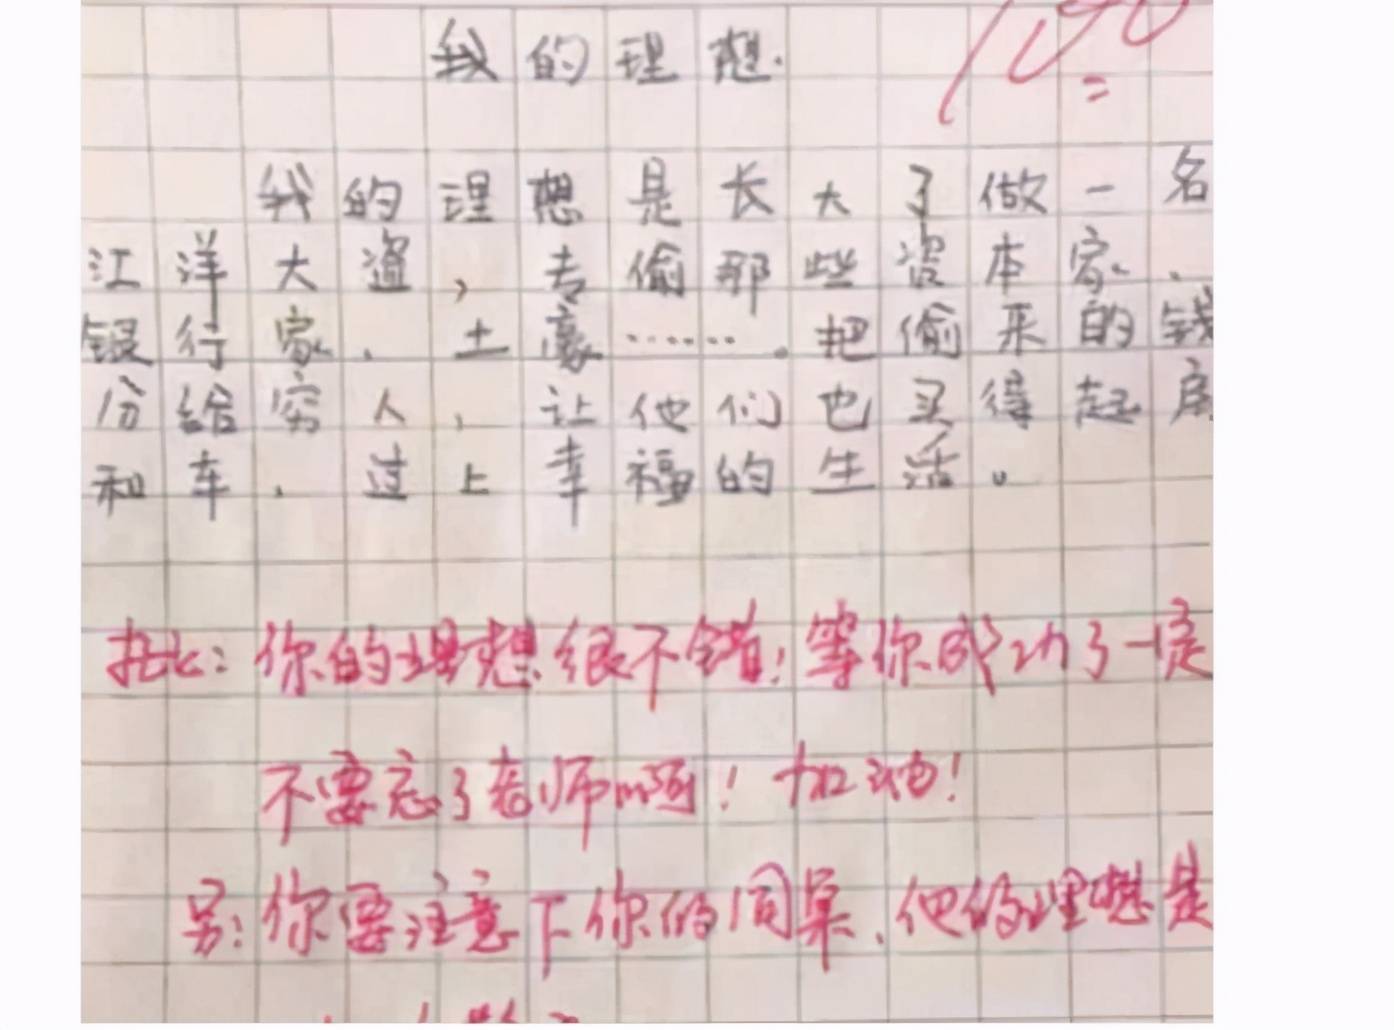 我的理想.
100
我的理想是长大了做一名
江洋大盗，专偷那些资本家、
银行家、土豪……。把偷来的钱
份给穷人，让他们也买得起房
和车，过上幸福的生活。
批：你的理想很不错！等你成功了一定
不要忘了老师啊！加油！
另：你要注意下你的同桌，他的理想是